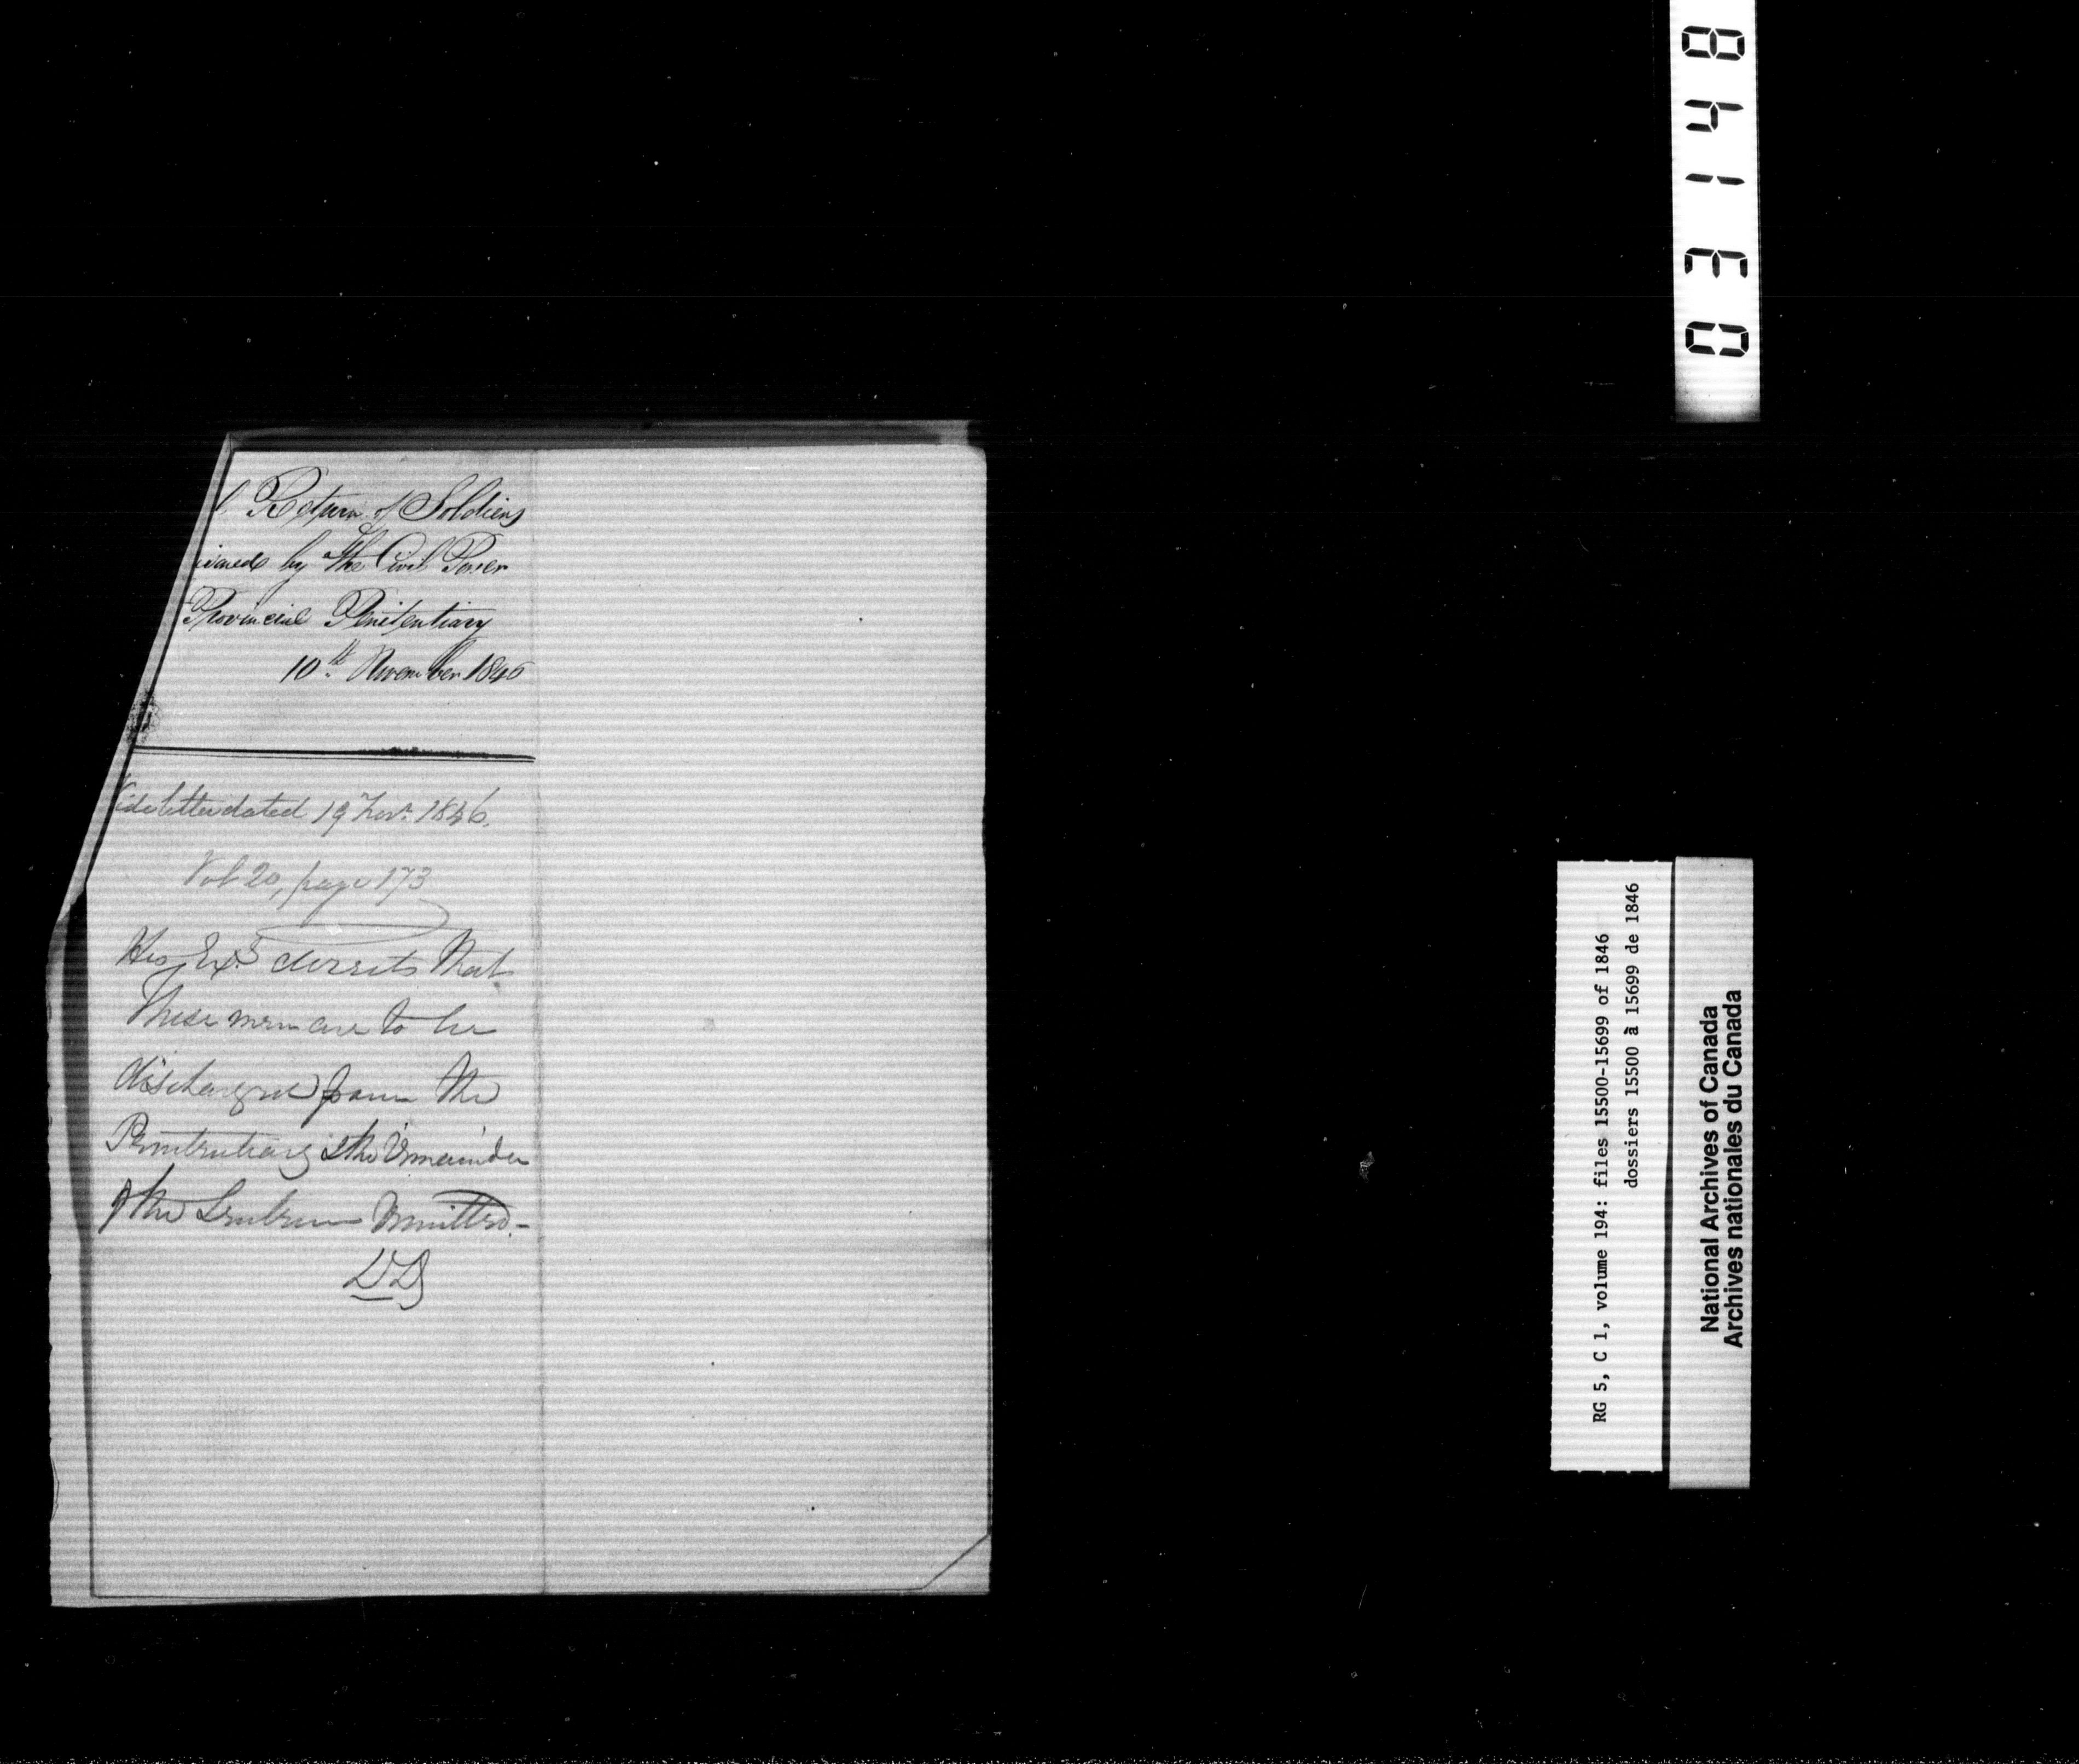 l Return of Soldiers
by The Civil Power
Provincial Penitentiary
10th November 1846
Vide letter dated 19 Novr 1846.
Vol 20, page 173
His Exy directs that
these men are to be
discharged from the
Penitentiary & the remainder
of the Sentence remitted.-
03148
RG 5, C 1, volume 194: files 15500-15699 of 1846
dossiers 15500 à 15699 de 1846
National Archives of Canada
Archives nationales du Canada